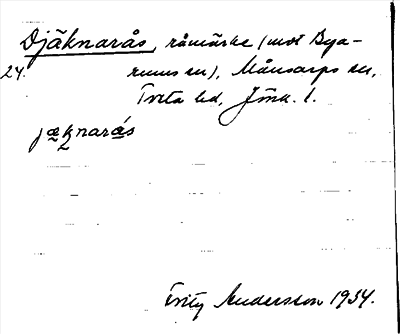 Djäknarås, råmärke (mot Bya-
24. rums sn), Månsarps sn,
Tveta hd, Jönk. l.
jäknarås
Fritz Andersson 1934.